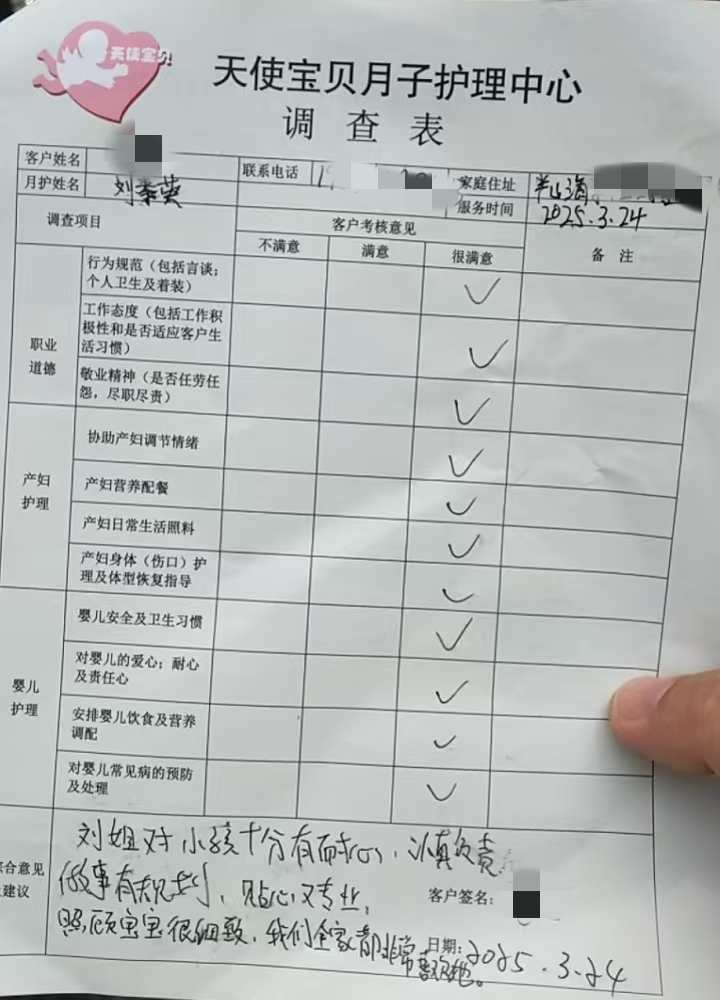 天使宝贝
天使宝贝月子护理中心
调查表
客户姓名
联系电话
家庭住址
月护姓名 刘
服务时间 2025.3.24
调查项目
客户考核意见
备注
不满意 满意 很满意
职业道德
行为规范（包括言谈；
个人卫生及着装） ✓
工作态度（包括工作积
极性和是否适应客户生
活习惯） ✓
敬业精神（是否任劳任
怨，尽职尽责） ✓
产妇护理
协助产妇调节情绪 ✓
产妇营养配餐 ✓
产妇日常生活照料 ✓
产妇身体（伤口）护
理及体型恢复指导 ✓
婴儿护理
婴儿安全及卫生习惯 ✓
对婴儿的爱心；耐心
及责任心 ✓
安排婴儿饮食及营养
调配 ✓
对婴儿常见病的预防
及处理 ✓
合意见
建议
刘姐对小孩十分有耐心、认真负责
做事有规划、贴心又专业，
照顾宝宝很细致，我们全家都非常喜欢她。
客户签名：
日期：2025.3.24